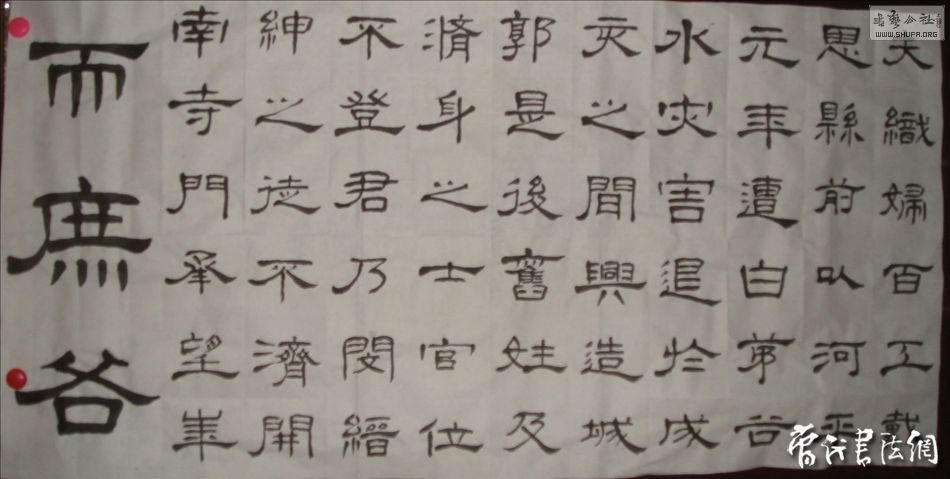 夫織婦百工戴
恩縣前以河平
元年遭白茅谷
水灾害退於戌
亥之間興造城
郭是後舊姓及
身之士官位
不登君乃閔縉
紳之徒不濟開
南寺門承望華
而庶
書藝公社
WWW.SHUFA.ORG
當代書法網